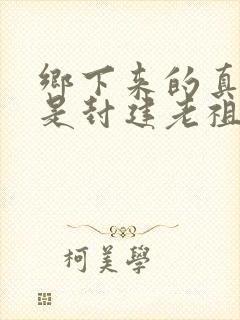 鄉下来的真
是封建老祖
柯美學